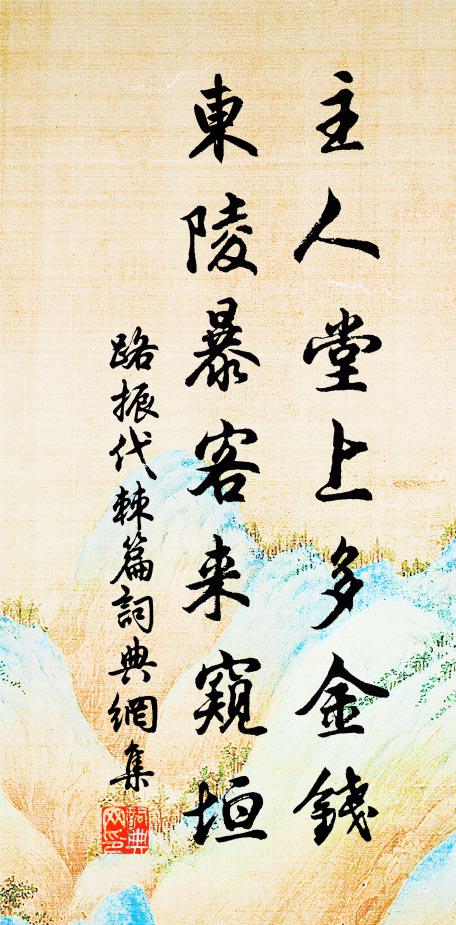 主人堂上多金錢
東陵暴客来窺垣
路振代棘篇詞典網集
詞典网印